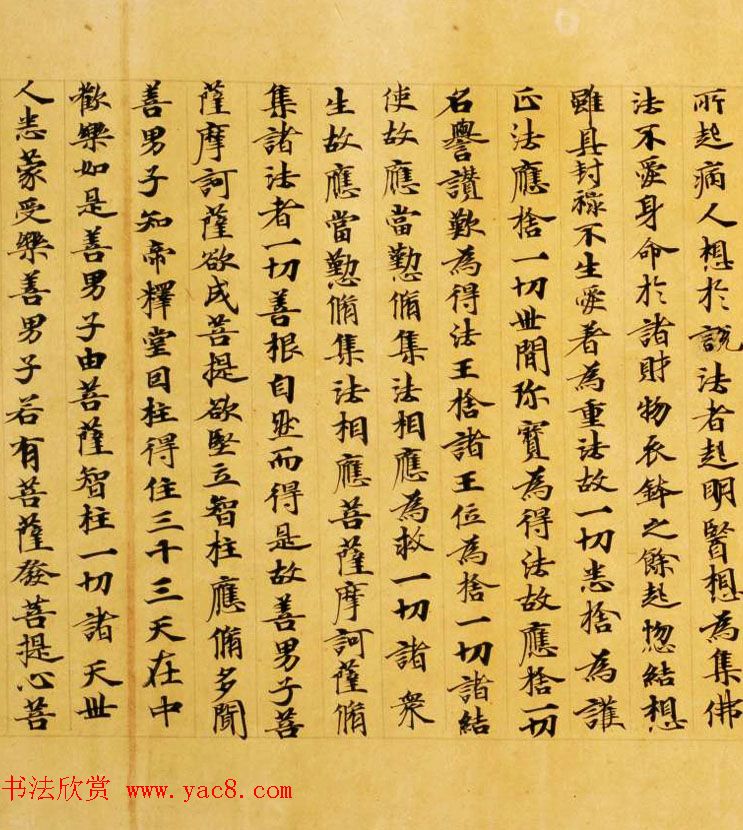 所起病人想於說法者起明醫想為集佛
法不愛身命於諸財物衣鉢之餘起惚結想
雖具封祿不生愛著為重法故一切悉捨為護
正法應捨一切世間珎寶為得法故應捨一切
名譽讚歎為得法王捨諸王位為捨一切諸結
使故應當懃脩集法相應為救一切諸衆
生故應當懃脩集法相應菩薩摩訶薩脩
集諸法者一切善根自然而得是故善男子菩
薩摩訶薩欲成菩提欲竪立智柱應脩多聞
善男子知帝釋堂因柱得住三十三天在中
歡樂如是善男子由菩薩智柱一切諸天世
人悉蒙受樂善男子若有菩薩發菩提心菩
书法欣赏 www.yac8.com